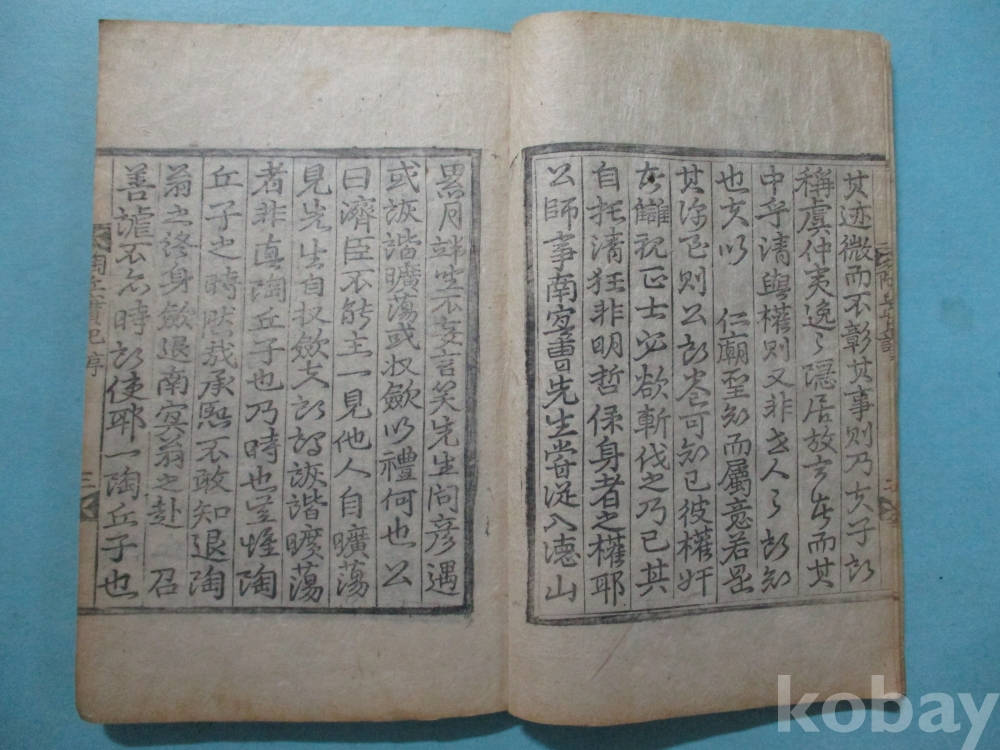 其迹微而不彰其事則乃夫子所
稱虞仲夷逸之隱居放言者而其
中乎清與權則又非世人之所知
也夫以 仁廟聖知而屬意若是
其深焉則公所告可知已彼權奸
者讎視正士必欲斬伐之乃已其
自托清狂非明哲保身者之權耶
公師事南冥曹先生嘗從入德山
累月端坐不妄言笑先生問彦遇
或詼諧曠蕩或收斂以禮何也公
曰濟臣不能主一見他人自曠蕩
見先生自收斂夫所謂詼諧曠蕩
者非真陶丘子也乃時也豈惟陶
丘子之時然哉承熙不敢知退陶
翁之終身斂退南冥翁之赴 召
善謔不亦時所使耶一陶丘子也
陶丘實記 序
三
陶丘實記
二
kobay